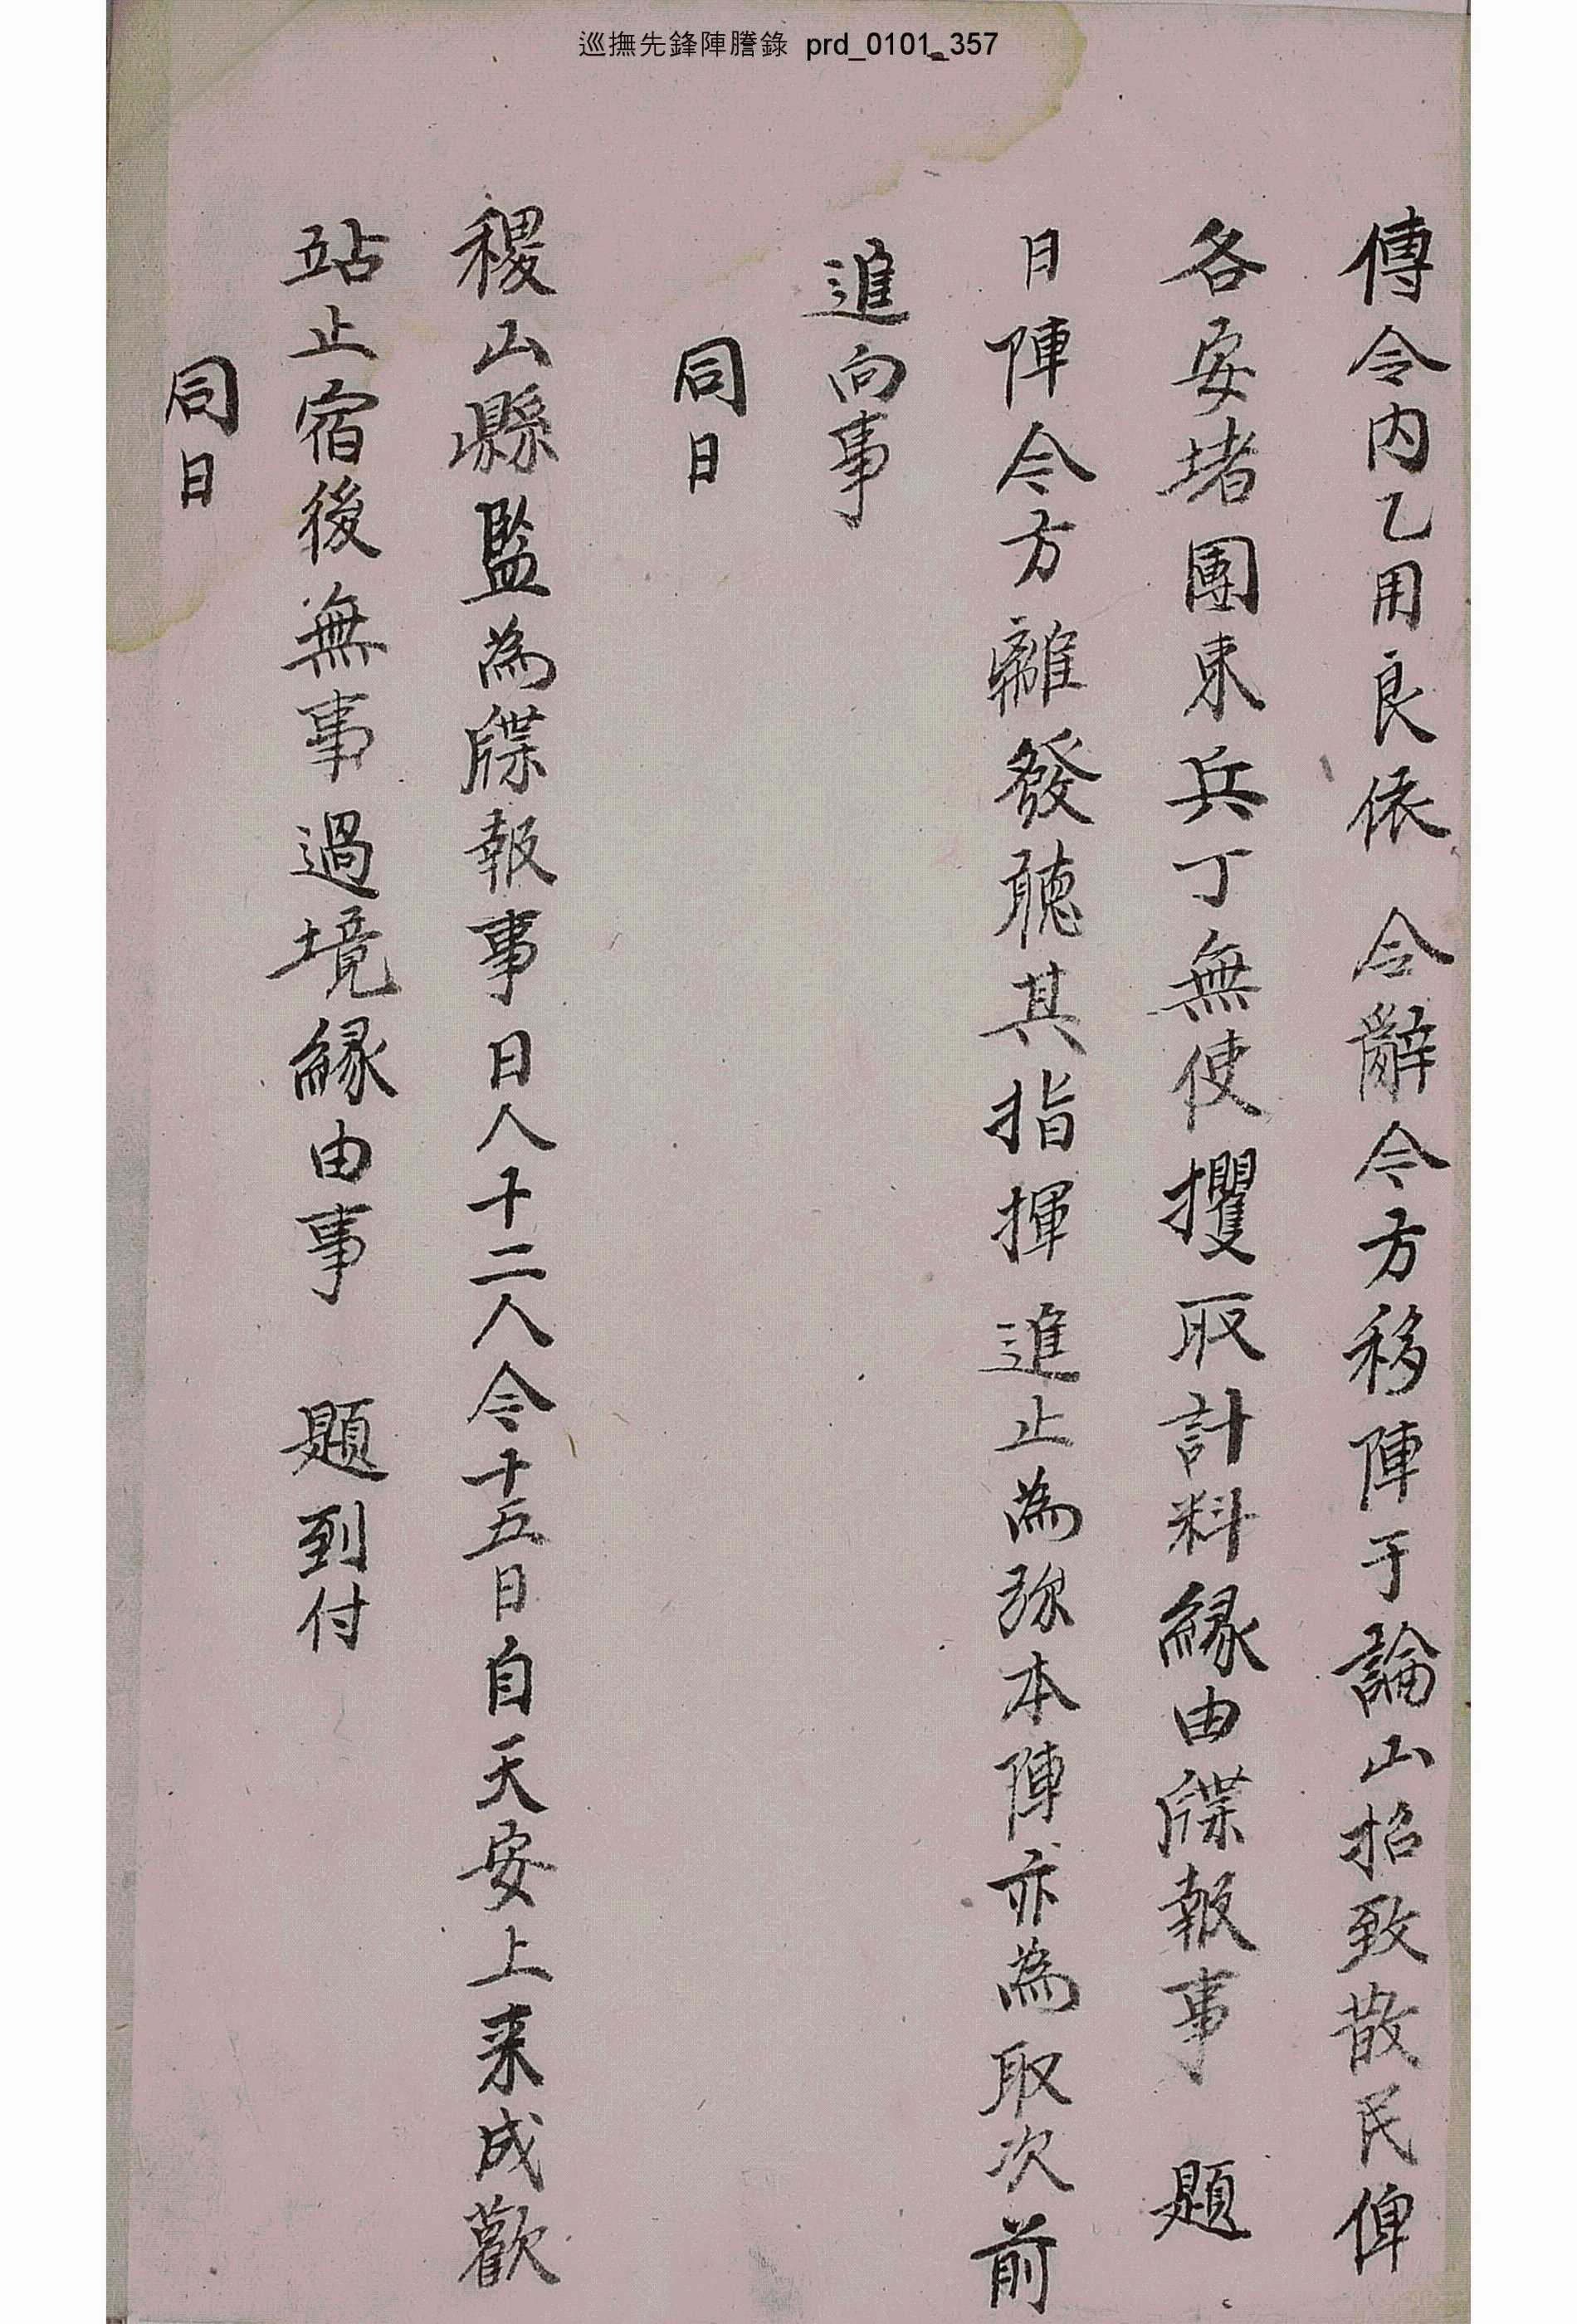 巡撫先鋒陣謄錄 prd_0101_357
傳令內乙用良依 令辭令方移陣于論山招致散民俾
各安堵團束兵丁無使攫取計料緣由牒報事 題
日陣令方離發聽其指揮 進止為旀本陣亦為取次前
進向事
同日
稷山縣監為牒報事日人十二人令十五日自天安上来成歡
站止宿後無事過境緣由事 題到付
同日